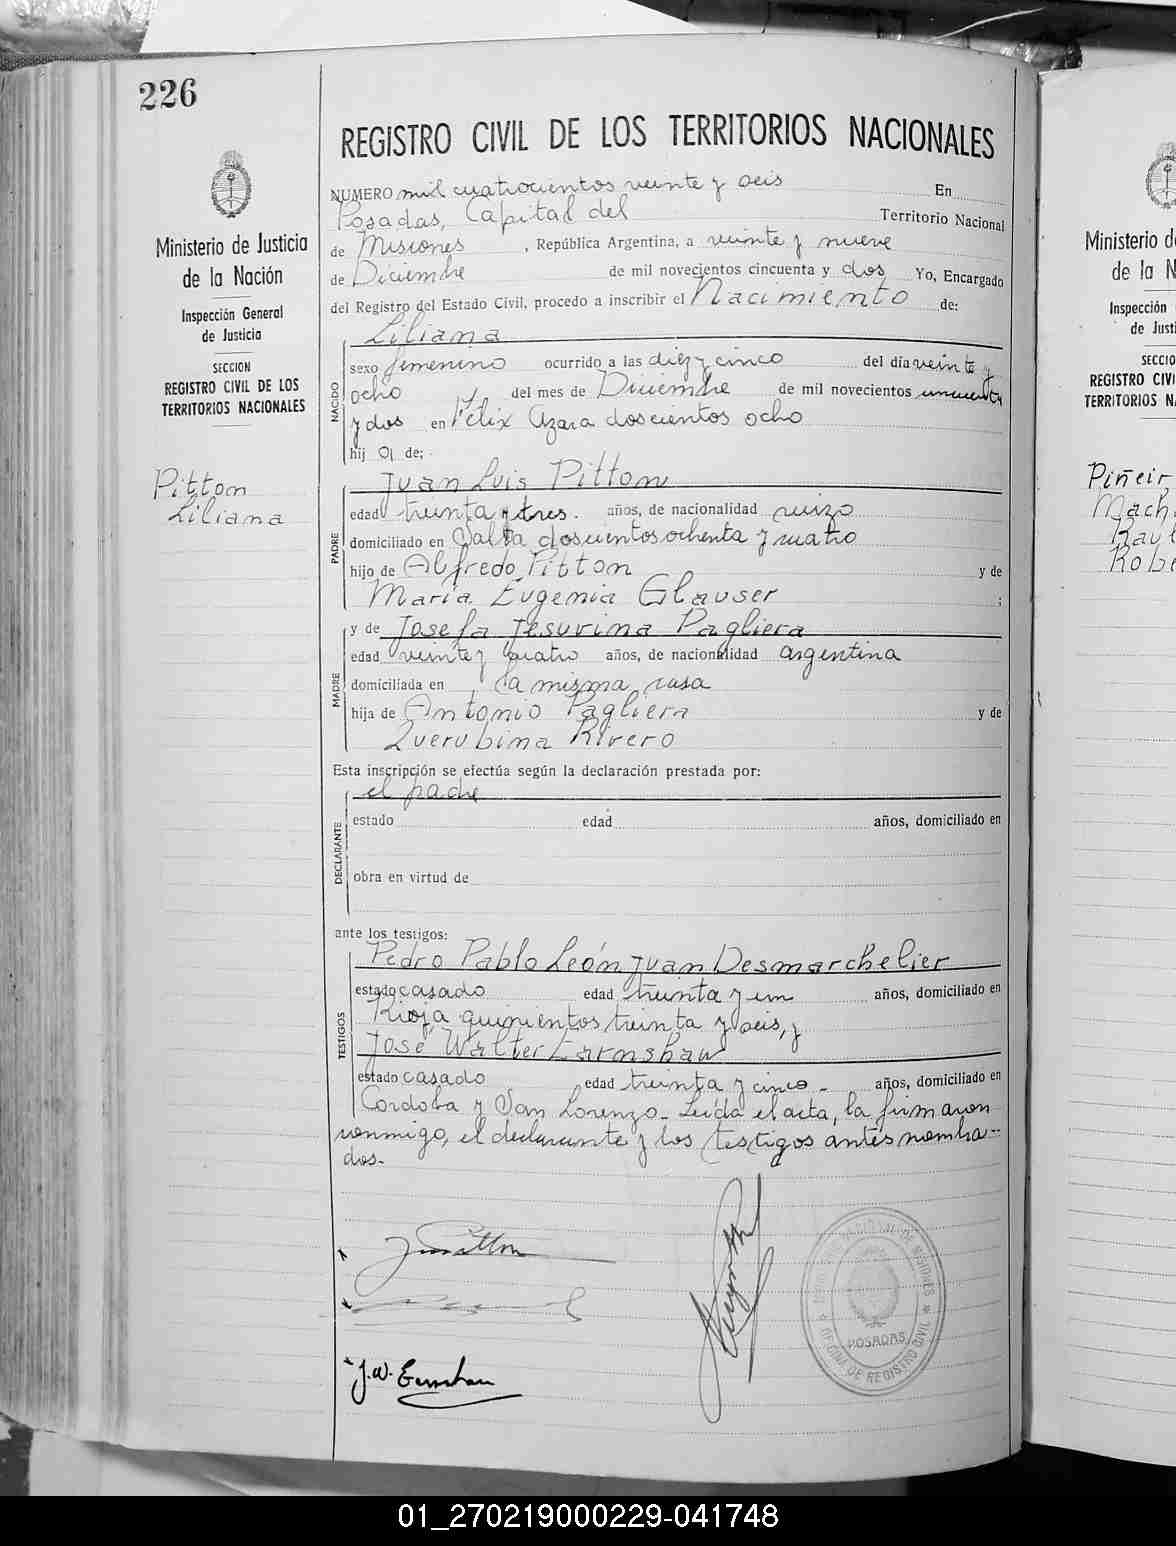 226
REGISTRO CIVIL DE LOS TERRITORIOS NACIONALES
Ministerio de Justicia
de la Nación
Inspección General
de Justicia
SECCION
REGISTRO CIVIL DE LOS
TERRITORIOS NACIONALES
Pitton
Liliana
NUMERO mil cuatrocientos veinte y seis En
Posadas, Capital del Territorio Nacional
de Misiones, República Argentina, a veinte y nueve
de Diciembre de mil novecientos cincuenta y dos Yo, Encargado
del Registro del Estado Civil, procedo a inscribir el Nacimiento de:
NACIDO
Liliana
sexo femenino ocurrido a las diez y cinco del día veinte y
ocho del mes de Diciembre de mil novecientos cincuenta
y dos en Félix Azara doscientos ocho
hij a de:
PADRE
Juan Luis Pitton
edad treinta y tres. años, de nacionalidad suizo
domiciliado en Salta doscientos ochenta y cuatro
hijo de Alfredo Pitton y de
María Eugenia Glauser ;
MADRE
y de Josefa Jesuvina Pagliera
edad veinte y cuatro años, de nacionalidad argentina
domiciliada en la misma casa
hija de Antonio Pagliera y de
Querubina Rivero
Esta inscripción se efectúa según la declaración prestada por:
DECLARANTE
el padre
estado edad años, domiciliado en
obra en virtud de
ante los testigos:
TESTIGOS
Pedro Pablo León Juan Desmarchelier
estado casado edad treinta y un años, domiciliado en
Rioja quinientos treinta y seis, y
José Walter Earnshaw
estado casado edad treinta y cinco - años, domiciliado en
Cordoba y San Lorenzo - Leída el acta, la firmaron
conmigo, el declarante y los testigos antes nombra-
dos.-
J. Pitton
J. W. Earnshaw
POSADAS
OFICINA DE REGISTRO CIVIL
Ministerio d
de la N
Inspección
de Justi
SECCIO
REGISTRO CIVI
TERRITORIOS N
Piñeir
Mach
Raul
Robe
01_270219000229-041748